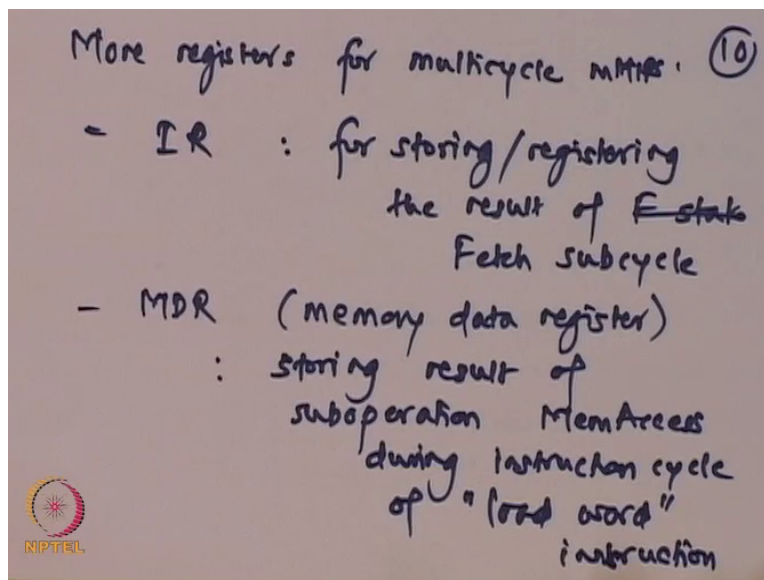 More registers for multicycle MIPS. 10
- IR : for storing/registering
the result of F state
Fetch subcycle
- MDR (memory data register)
: storing result of
suboperation MemAccess
during instruction cycle
of "load word"
instruction
NPTEL